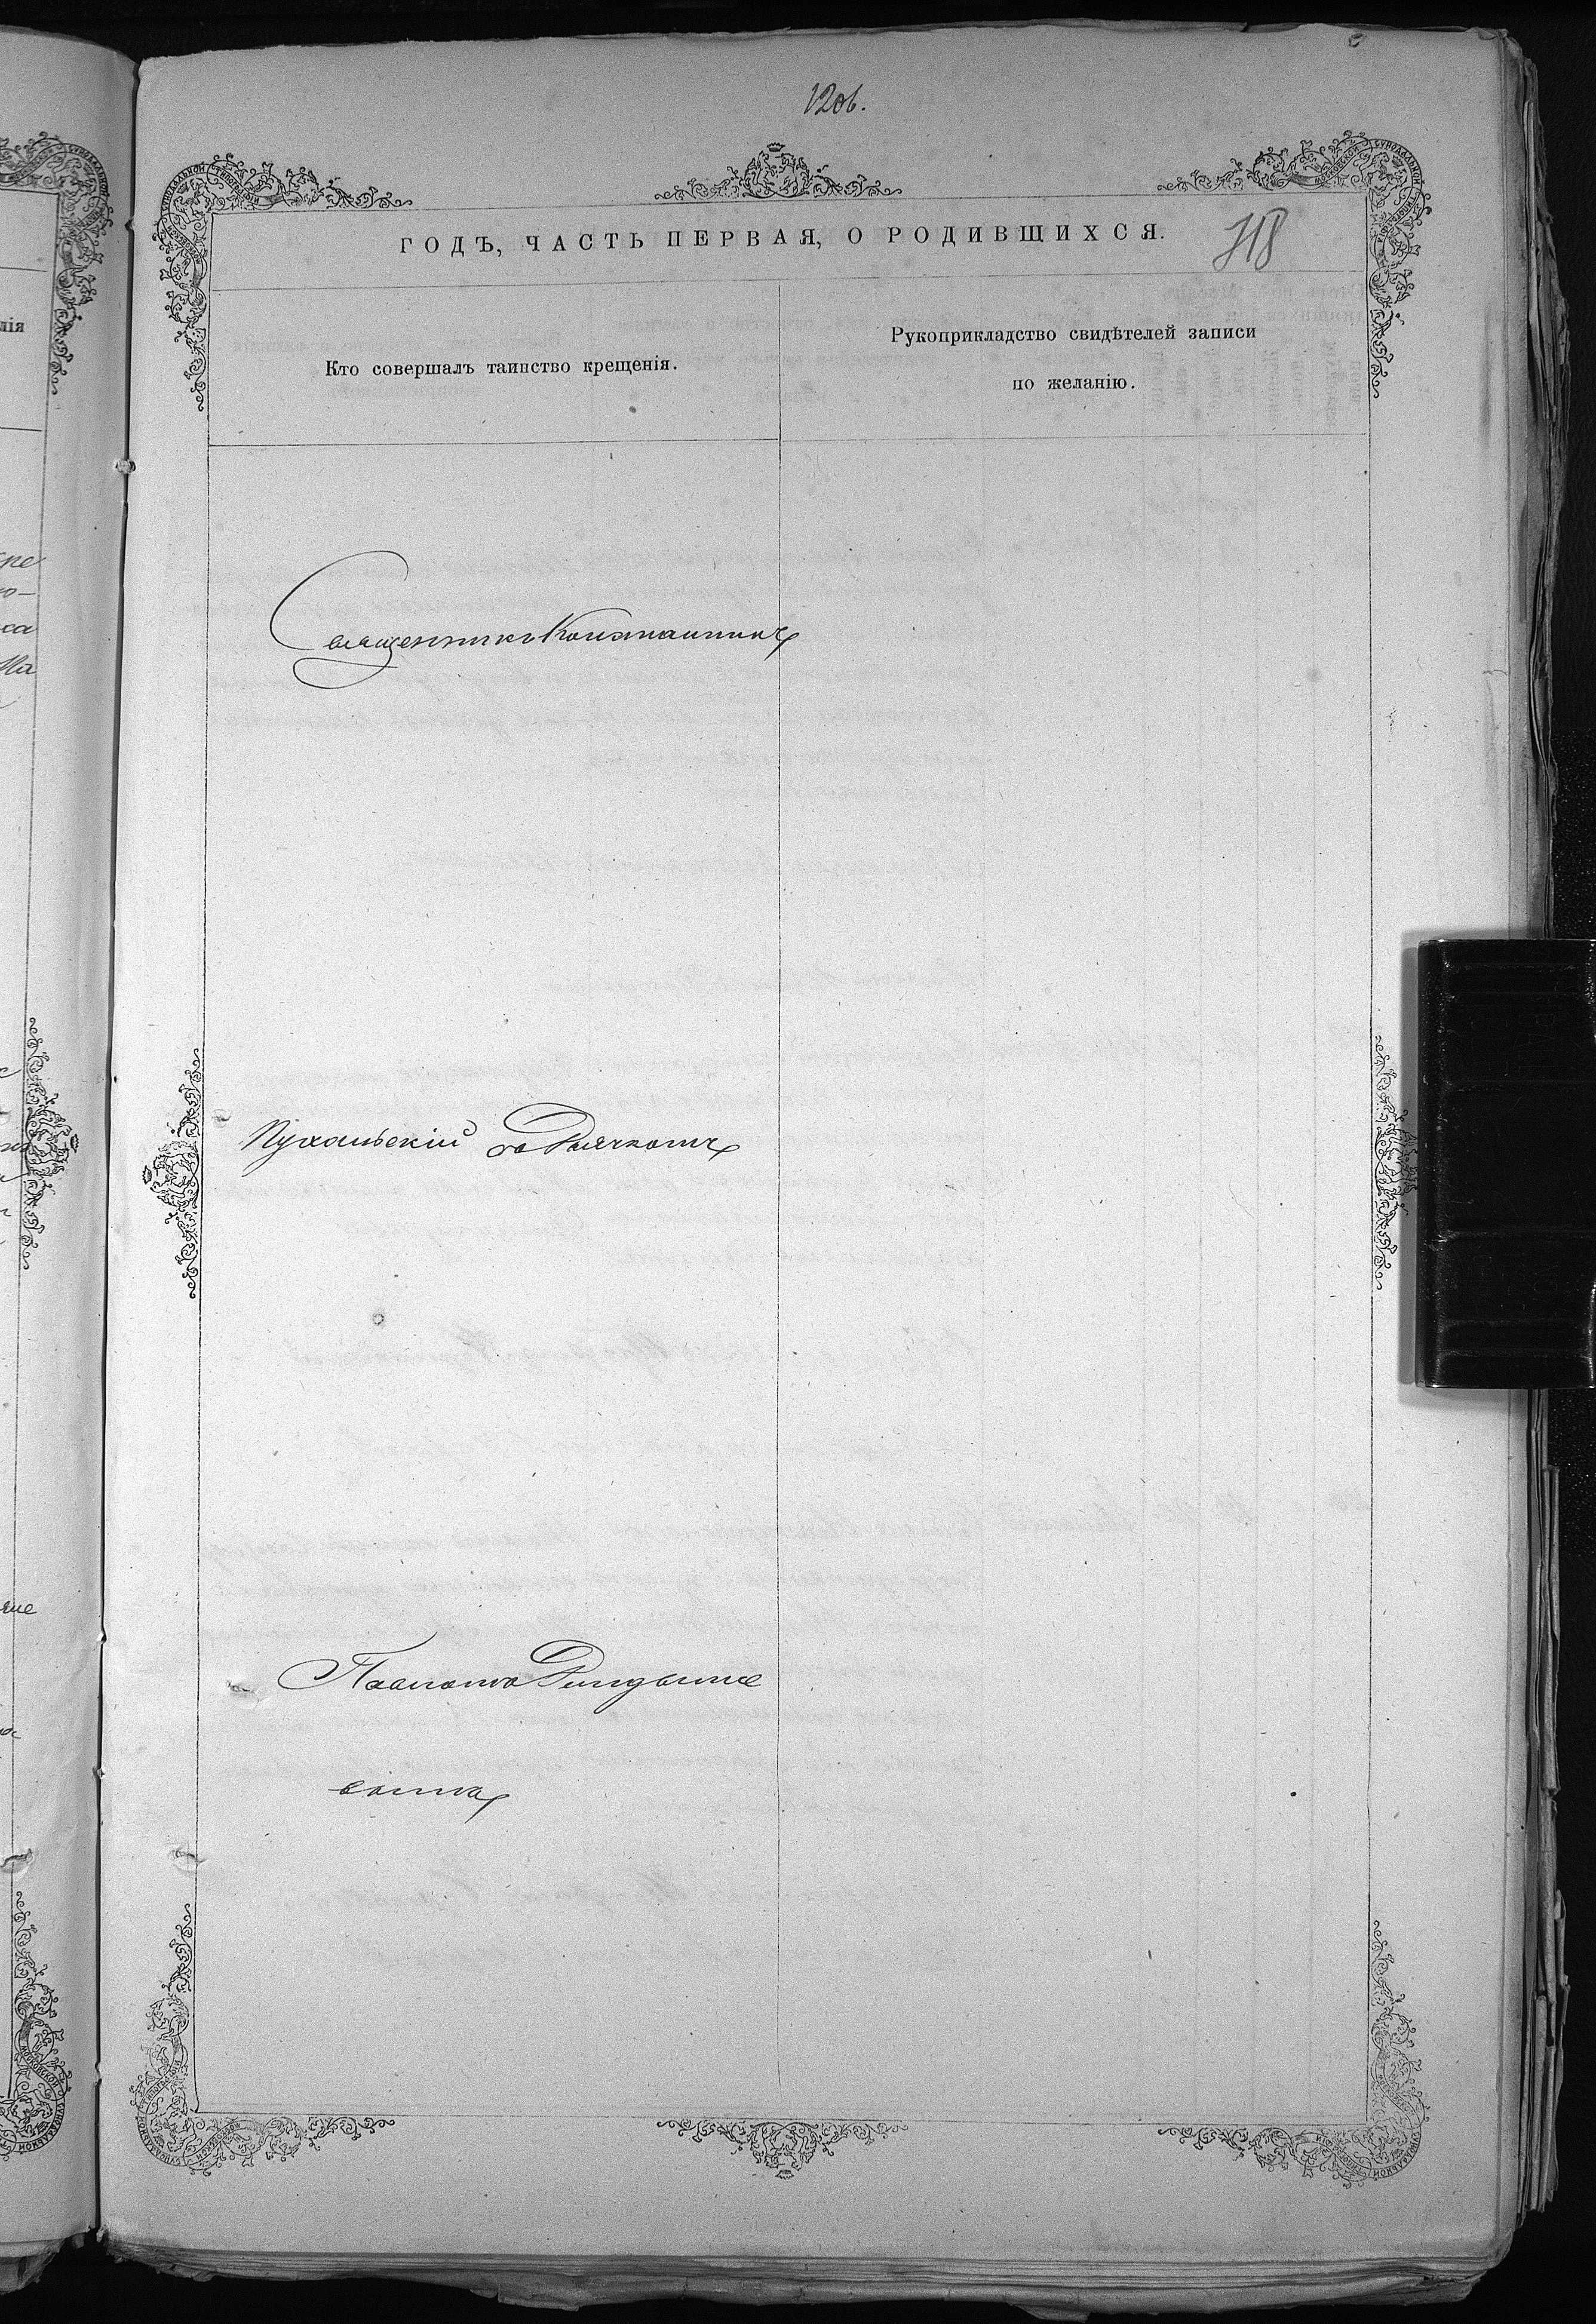 12об.
ГОДЪ, ЧАСТЬ ПЕРВАЯ, О РОДИВШИХСЯ.
318
Кто совершалъ таинство крещенія.
Рукоприкладство свидѣтелей записи
по желанію.
Священникъ Константинъ
Пухальскій съ Дьячкомъ
Павломъ